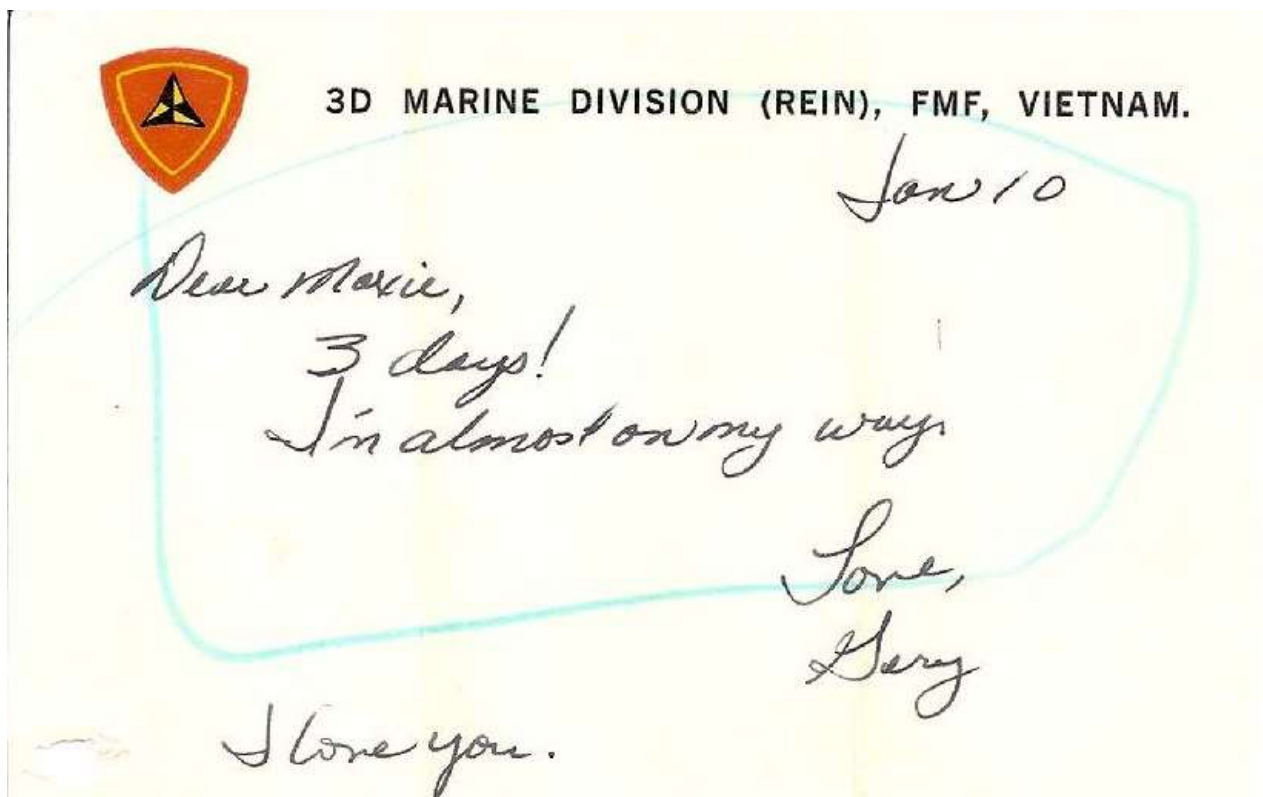 3D MARINE DIVISION (REIN), FMF, VIETNAM.
Jan 10
Dear Maxie,
3 days!
I'm almost on my way.
Love,
Gary
I love you.